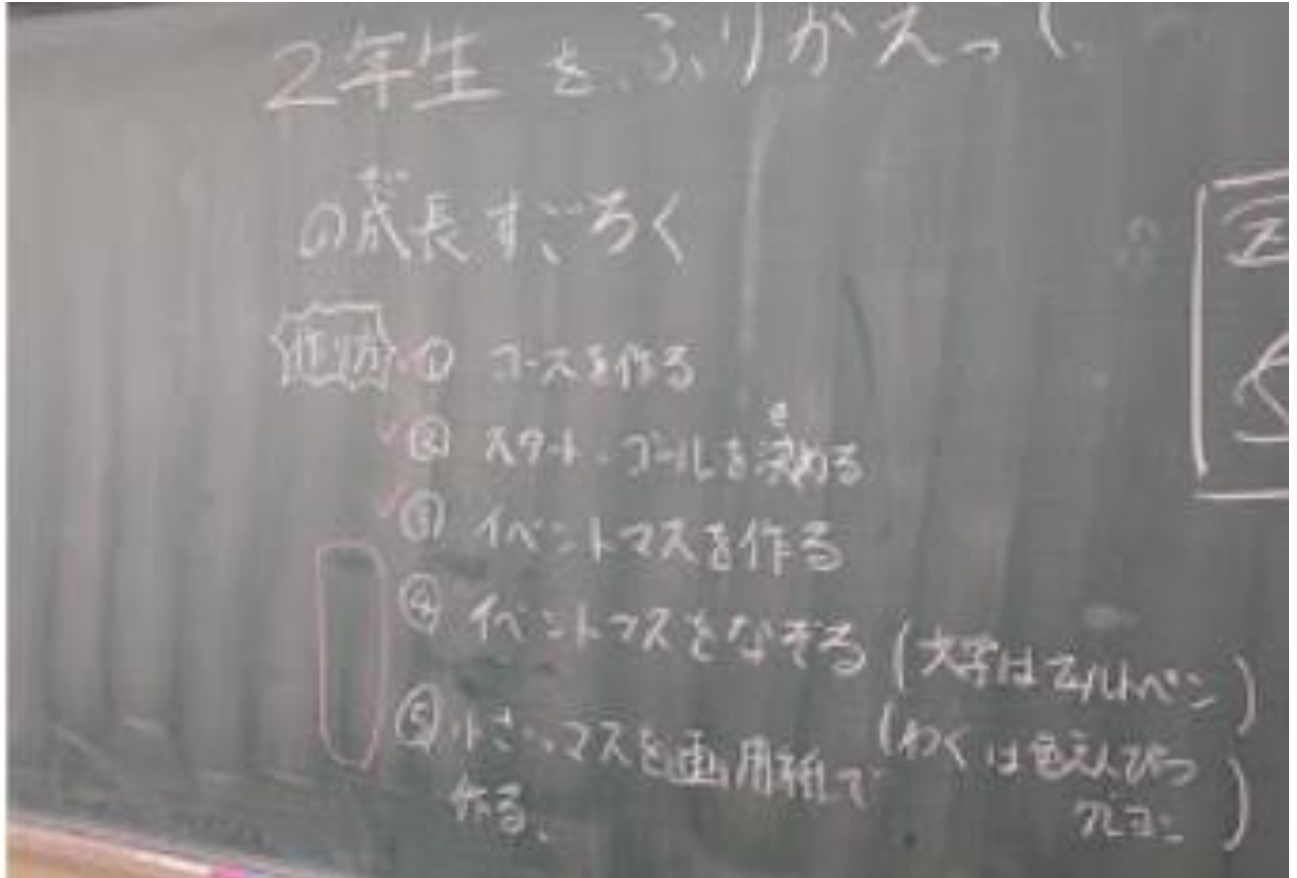 2年生をふりかえって
の成長すごろく
作り方 ① コースを作る
② スタート・ゴールを決める
③ イベントマスを作る
④ イベントマスをなぞる (文字は
(わくは色えんぴつ
⑤ 小さいマスを画用紙で
作る。